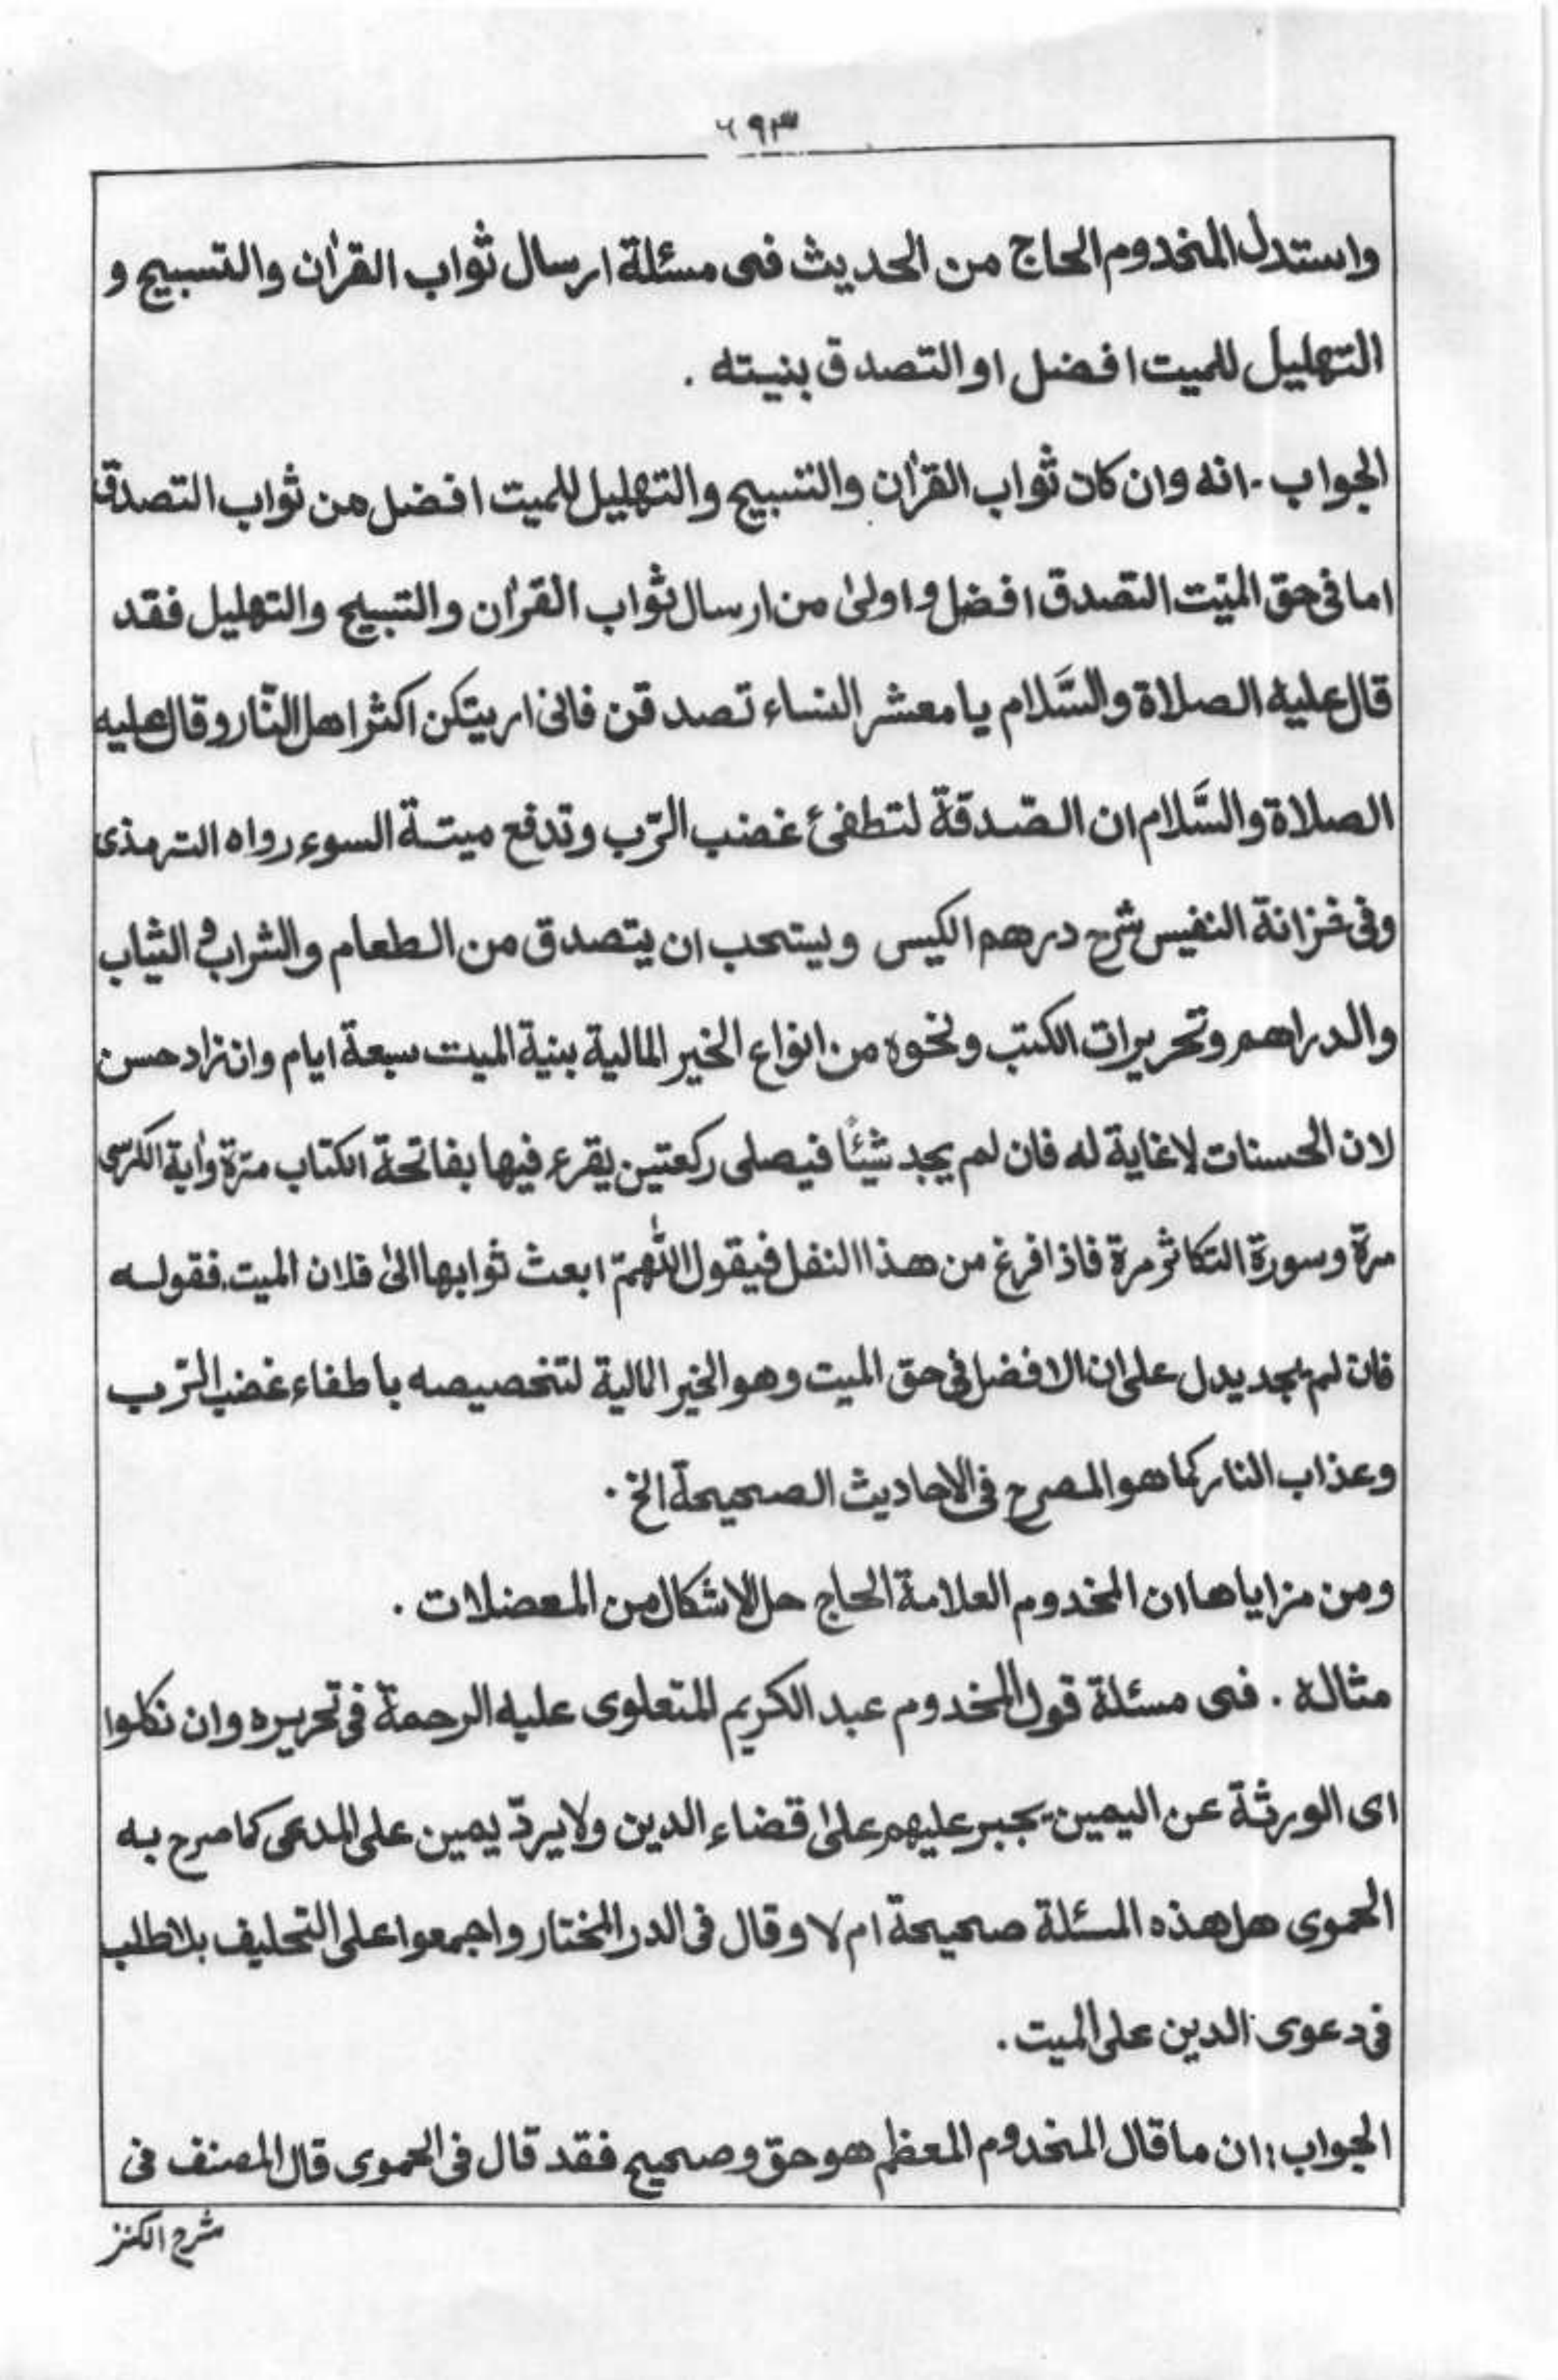 ٦٩٣
واستدل المخدوم الحاج من الحديث فى مسئلة ارسال ثواب القرٰان والتسبيح و
التهليل للميت افضل او التصدق بنيته .
الجواب - انه وان كان ثواب القرٰان والتسبيح والتهليل للميت افضل من ثواب التصدق
اما فى حق الميّت التصدق افضل و اولىٰ من ارسال ثواب القرٰان والتبيح والتهليل فقد
قال عليه الصلاة والسَّلام يا معشر النساء تصدقن فانى اريتكن اكثر اهل النّار وقال عليه
الصلاة والسَّلام ان الصّدقة لتطفئ غضب الرّب وتدفع ميتة السوء رواه الترمذى
وفى خزانة النفيس شرح درهم الكيس ويستحب ان يتصدق من الطعام والشراب و الثياب
والدراهم وتحريرات الكتب ونحوه من انواع الخير المالية بنية الميت سبعة ايام وان زاد حسن
لان الحسنات لاغاية له فان لم يجد شيئًا فيصلى ركعتين يقرء فيها بفاتحة الكتاب مرّة واٰية الكرسى
مرّة وسورة التكاثر مرة فاذا فرغ من هذا النفل فيقول اللّٰهمّ ابعث ثوابها الىٰ فلان الميت. فقوله
فان لم يجد يدل على ان الافضل فى حق الميت وهو الخير المالية لتخصيصه باطفاء غضب الرّب
وعذاب النار كما هو المصرح فى الاحاديث الصحيحة الخ .
ومن مزاياها ان المخدوم العلامة الحاج حل الاشكال من المعضلات .
مثاله . فى مسئلة قول المخدوم عبد الكريم المتعلوى عليه الرحمة فى تحريره وان نكلوا
اى الورثة عن اليمين يجبر عليهم علىٰ قضاء الدين ولا يردّ يمين على المدعى كما صرح به
الحموى هل هذه المسئلة صحيحة ام لا وقال فى الدر المختار واجمعوا على التحليف بلا طلب
فى دعوى الدين على الميت .
الجواب : ان ما قال المخدوم المعظم هو حق وصحيح فقد قال فى الحموى قال المصنف فى
شرح الكنز